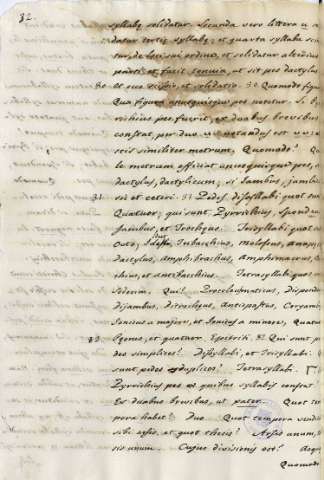 32.
syllabę solidatur. Secunda vero littera u a
datur tertię syllabę; et quarta syllaba scin
tur, de loco sui ordine, et solidatur alcidius
ponti; et facit tenuia, ut sit pes dactylus
30 et sic scissio et solidatio. 30 Quomodo figu
Qua figura unusquisque pes notatur. Si
richius pes fuerit, ex duabus brevibus
constat, per duo uu notandus est
seis similiter metrum, Quomodo? Q
le metrum efficiat unusquisque pes, a
dactylus, dactylicum; si Iambus, jambi
31 sic et ceteri. 31 Pedes, disyllabi sunt
Quatuor; qui sunt Pyrrichius, Spond
Iambus, et Trocheus. Trisyllabi quot
Octo, Tribacchus, molossus, anap
Dactylus, Amphibrachus, Amphimacrus,
chius, et antibacchius. Tetrasyllabi quot
Sedecim. Qui? Proceleumaticus, Dispond
Dijambus, Ditrocheus, Antispastus, Coryam
Ionicus a majore, et Ionicus a minore, Quatu
Peones, et quatuor Epetriti. 32 Qui sunt p
des simplices? Disyllabi, et Trisyllabi.
sunt pedes duplices? Tetrasyllabi.
Pyrrichius pes ex quibus syllabis constat
Ex duabus brevibus, ut pater. Quot tem
pora habet? Duo. Quot tempora vendi
sibi arsis, et quot thesis? Arsis unum,
sis unum. Cujus divisionis est? Aeq
Quomodo